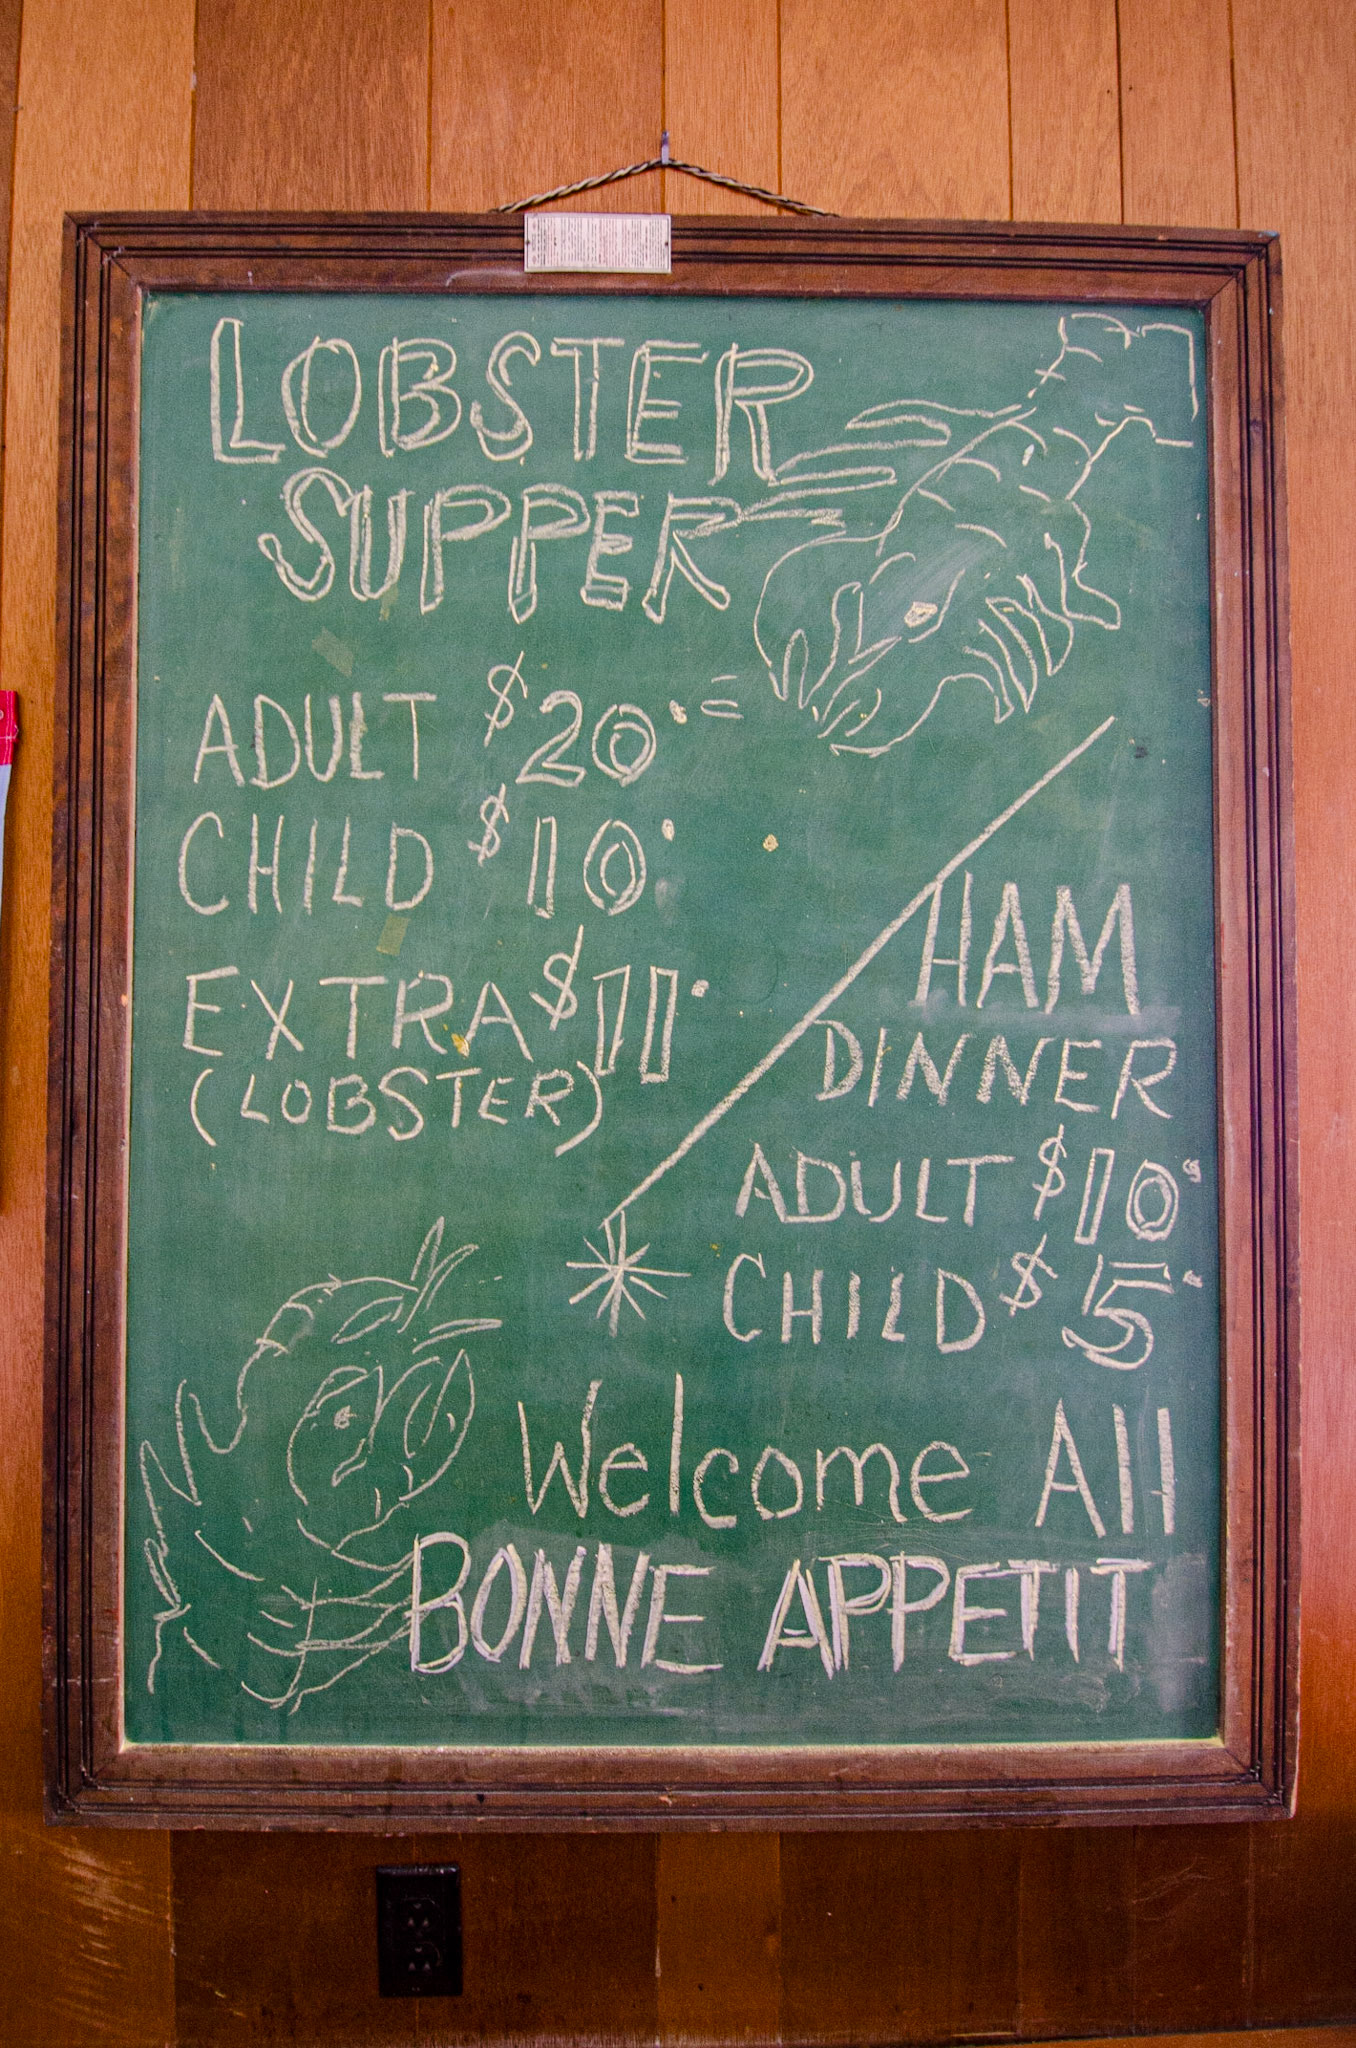 LOBSTER
SUPPER
ADULT $20
CHILD $10
EXTRA $11
(LOBSTER)
HAM
DINNER
ADULT $10
CHILD $5
Welcome All
BONNE APPETIT